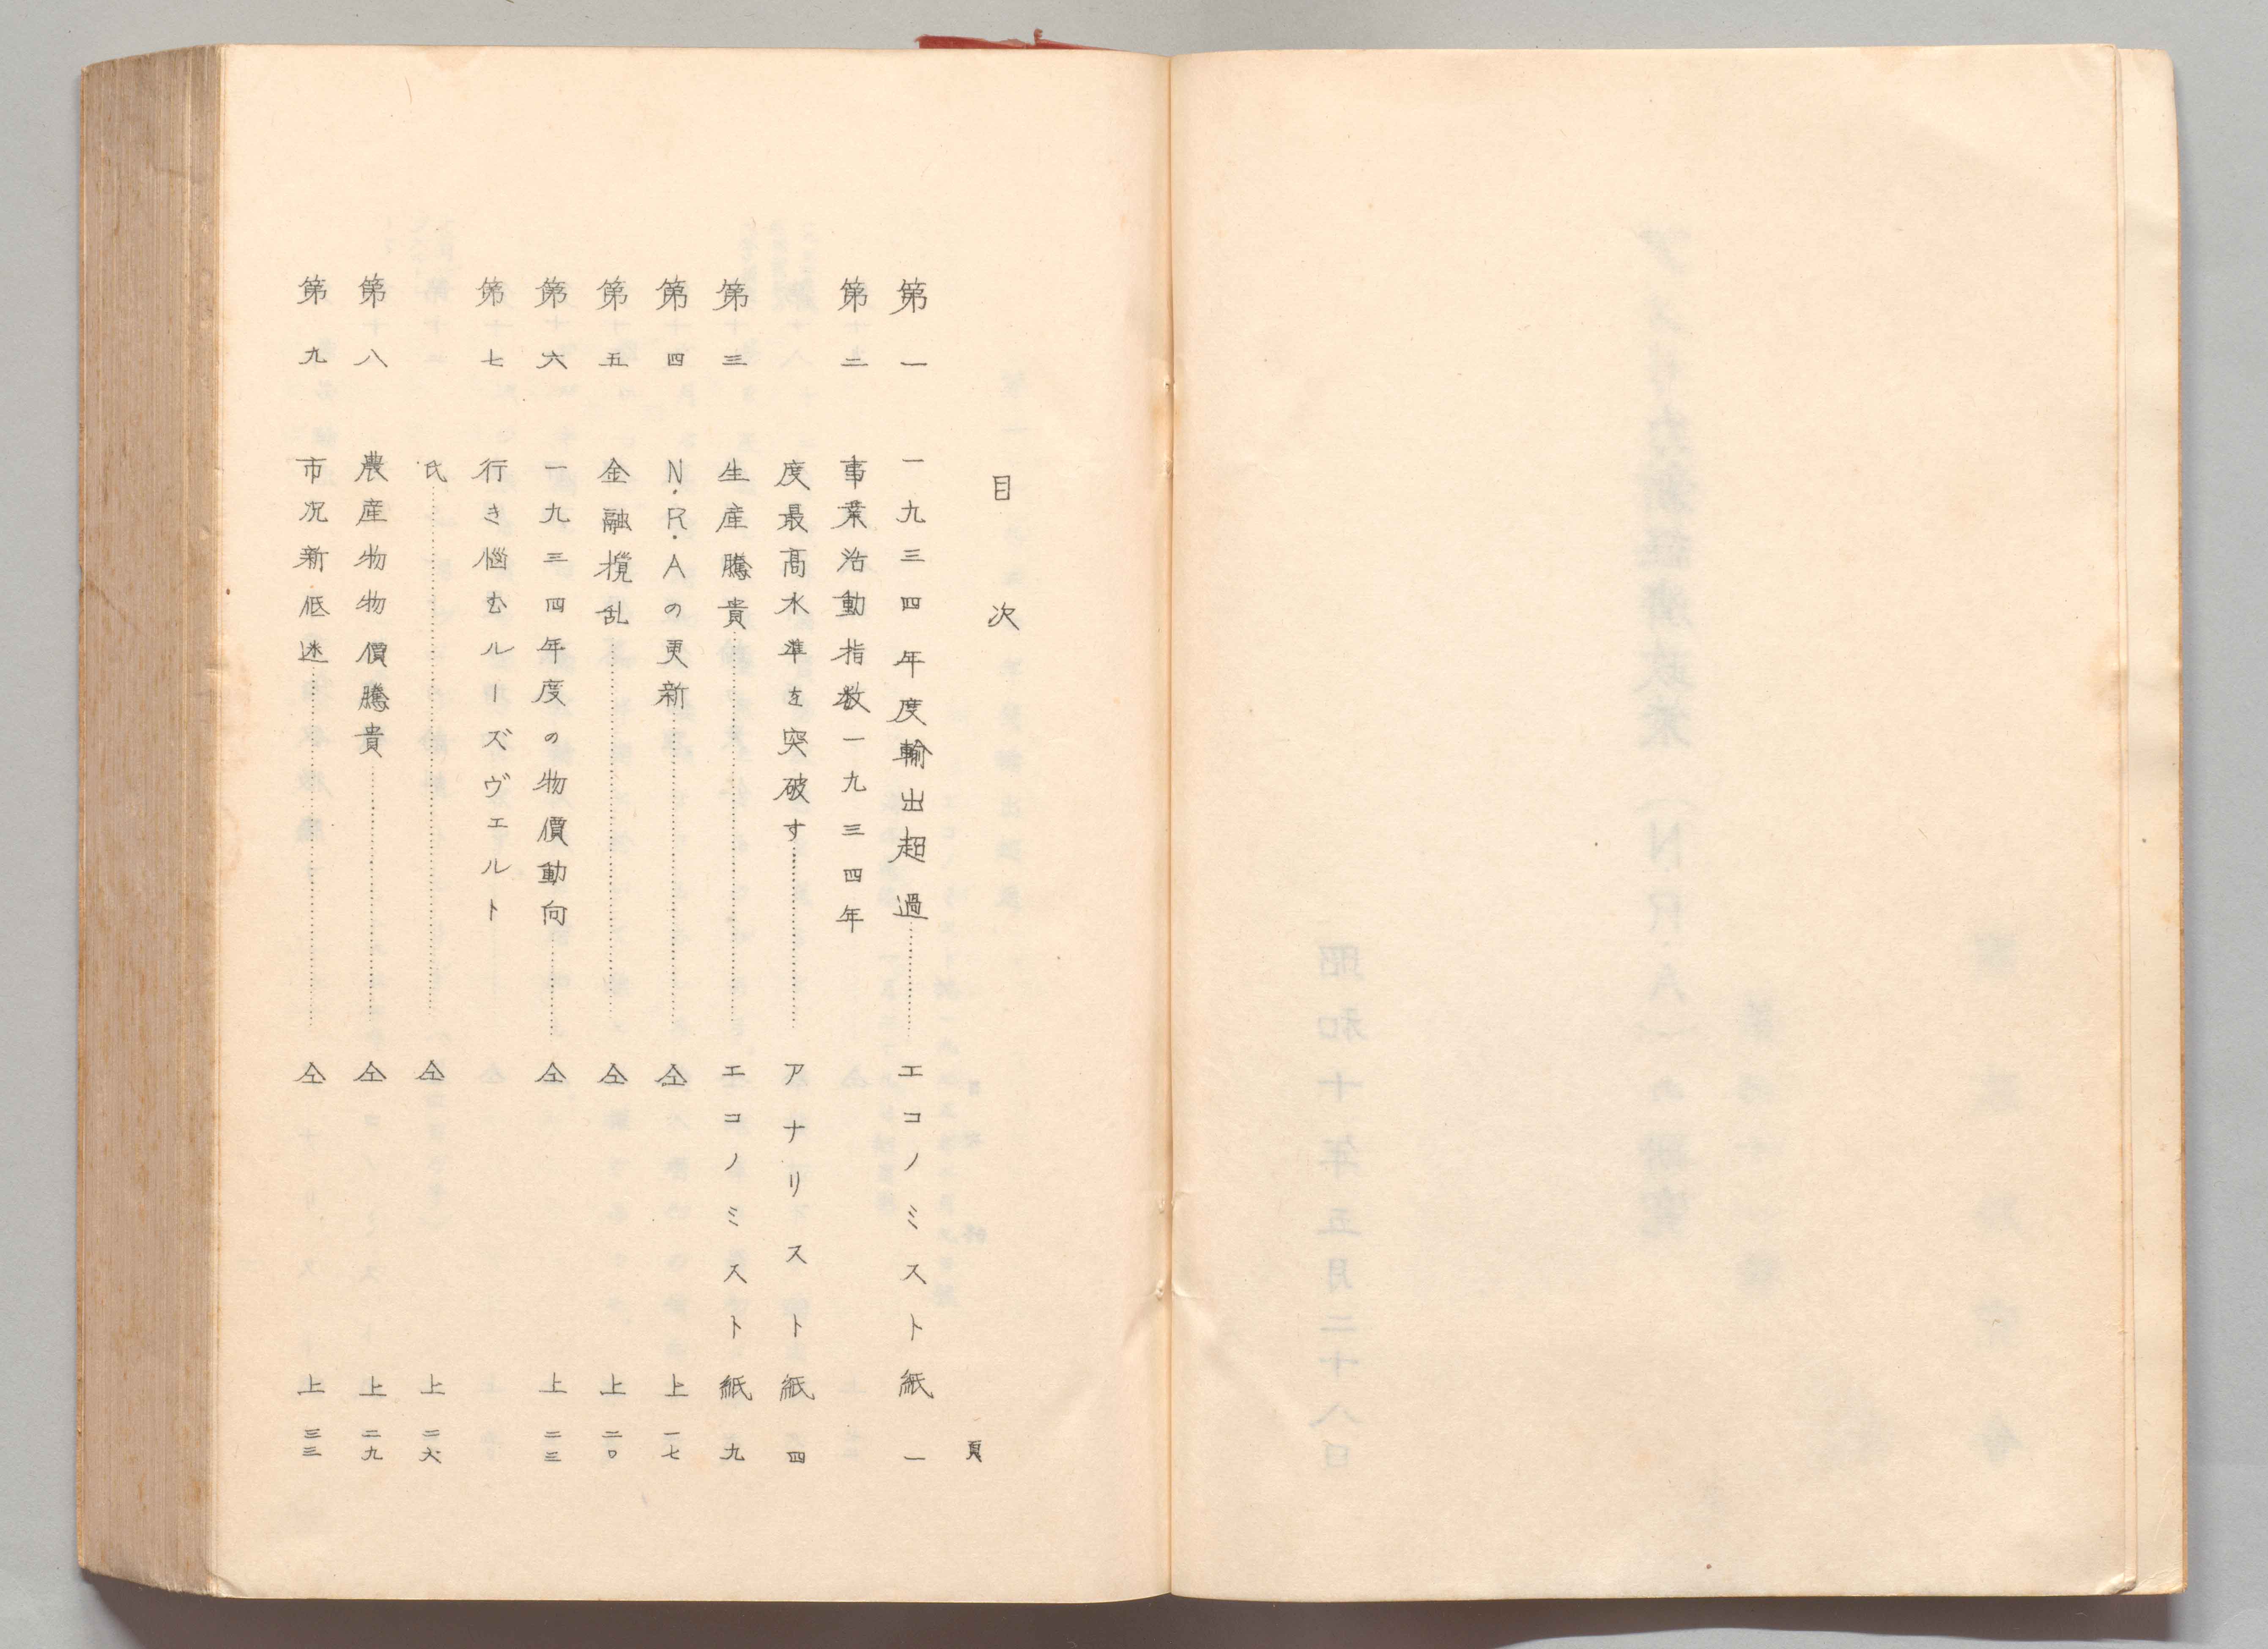 目次
頁
第一 一九三四年度輸出超過……エコノミスト紙 一
第二 事業活動指数一九三四年
度最高水準を突破す……アナリスト紙 四
第三 生産騰貴……エコノミスト紙 九
第四 N.R.Aの更新……仝上 一七
第五 金融攪乱……仝上 二〇
第六 一九三四年度の物價動向……仝上 二三
第七 行き悩むルーズヴェルト
氏……仝上 二六
第八 農産物物價騰貴……仝上 二九
第九 市况新低迷……仝上 三三